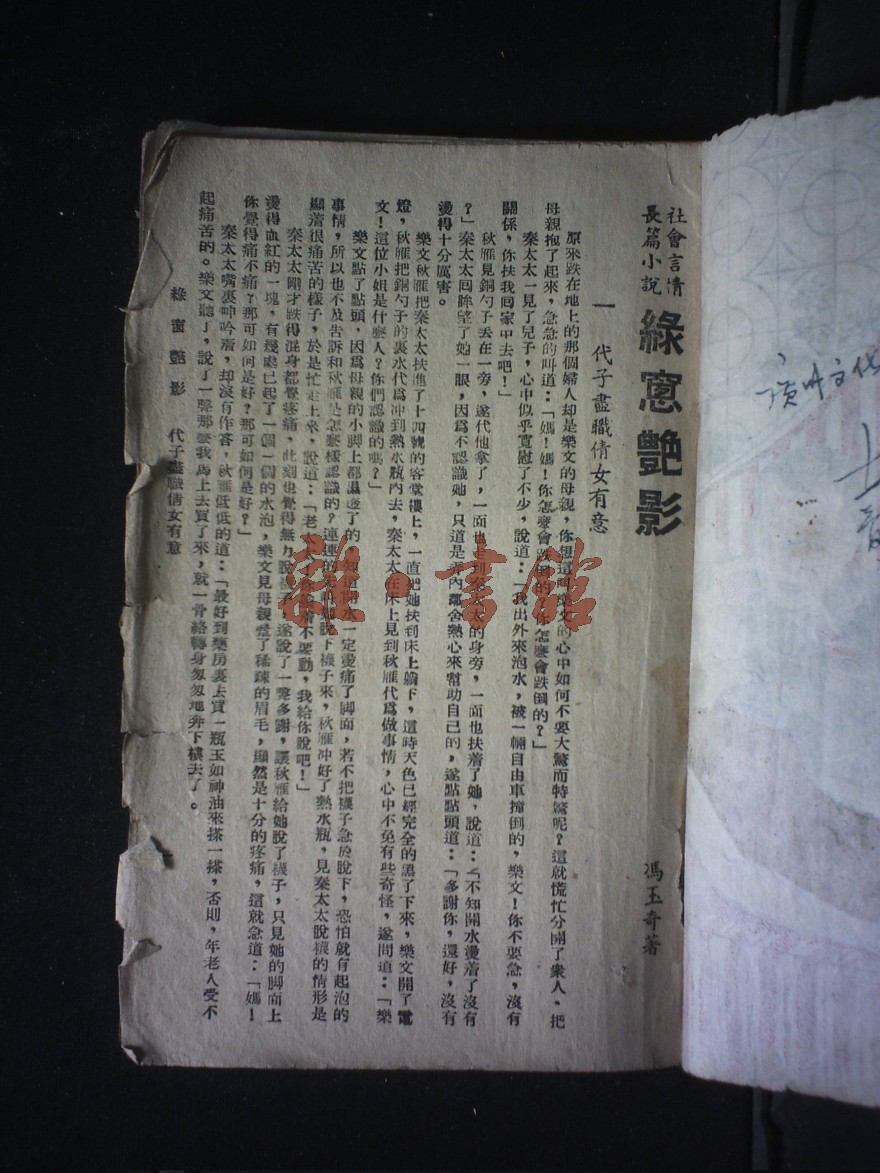 社會言情
長篇小說
綠窻艷影
馮玉奇著
一 代子盡職倩女有意
原來跌在地上的那個婦人却是樂文的母親，你想這叫樂文的心中如何不要大驚而特驚呢？這就慌忙分開了衆人，把
母親抱了起來，急急的叫道：「媽！媽！你怎麼會跌倒的？你怎麼會跌倒的？」
秦太太一見了兒子，心中似乎寬慰了不少，說道：「我出外來泡水，被一輛自由車撞倒的，樂文！你不要急，沒有
關係，你扶我回家中去吧！」
秋雁見銅勺子丟在一旁，遂代他拿了，一面也走到秦太太的身旁，一面也扶着了她，說道：「不知開水燙着了沒有
？」秦太太回眸望了她一眼，因爲不認識她，只道是弄內鄰舍熱心來幫助自己的，遂點點頭道：「多謝你，還好，沒有
燙得十分厲害。
樂文秋雁把秦太太扶進了十四號的客堂樓上，一直把她扶到床上躺下，這時天色已經完全的黑了下來，樂文開了電
燈，秋雁把銅勺子的裏水代爲冲到熱水瓶內去，秦太太在床上見到秋雁代爲做事情，心中不免有些奇怪，遂問道：「樂
文！這位小姐是什麼人？你們認識的嗎？」
樂文點了點頭，因爲母親的小脚上都濕透了的，知道開水一定燙痛了脚面，若不把襪子急於脫下，恐怕就有起泡的
事情，所以也不及告訴和秋雁是怎麼樣認識的？連連的先叫她脫下襪子來，秋雁冲好了熱水瓶，見秦太太脫襪的情形是
顯着很痛苦的樣子，於是忙走上來，說道：「老太太！你坐着不要動，我給你脫吧！」
秦太太剛才跌得混身都覺疼痛，此刻也覺得無力脫襪子，遂說了一聲多謝，讓秋雁給她脫了襪子，只見她的脚面上
燙得血紅的一塊，有幾處已起了一個一個的水泡，樂文見母親蹙了稀疎的眉毛，顯然是十分的疼痛，這就急道：「媽！
你覺得痛不痛？那可如何是好？那可如何是好？」
秦太太嘴裏呻吟着，却沒有作答，秋雁低低的道：「最好到藥房裏去買一瓶玉如神油來搽一搽，否則，年老人受不
起痛苦的。樂文聽了，說了一聲那麼我馬上去買了來，就一骨絡轉身匆匆地奔下樓去了。
綠窻艷影 代子盡職倩女有意